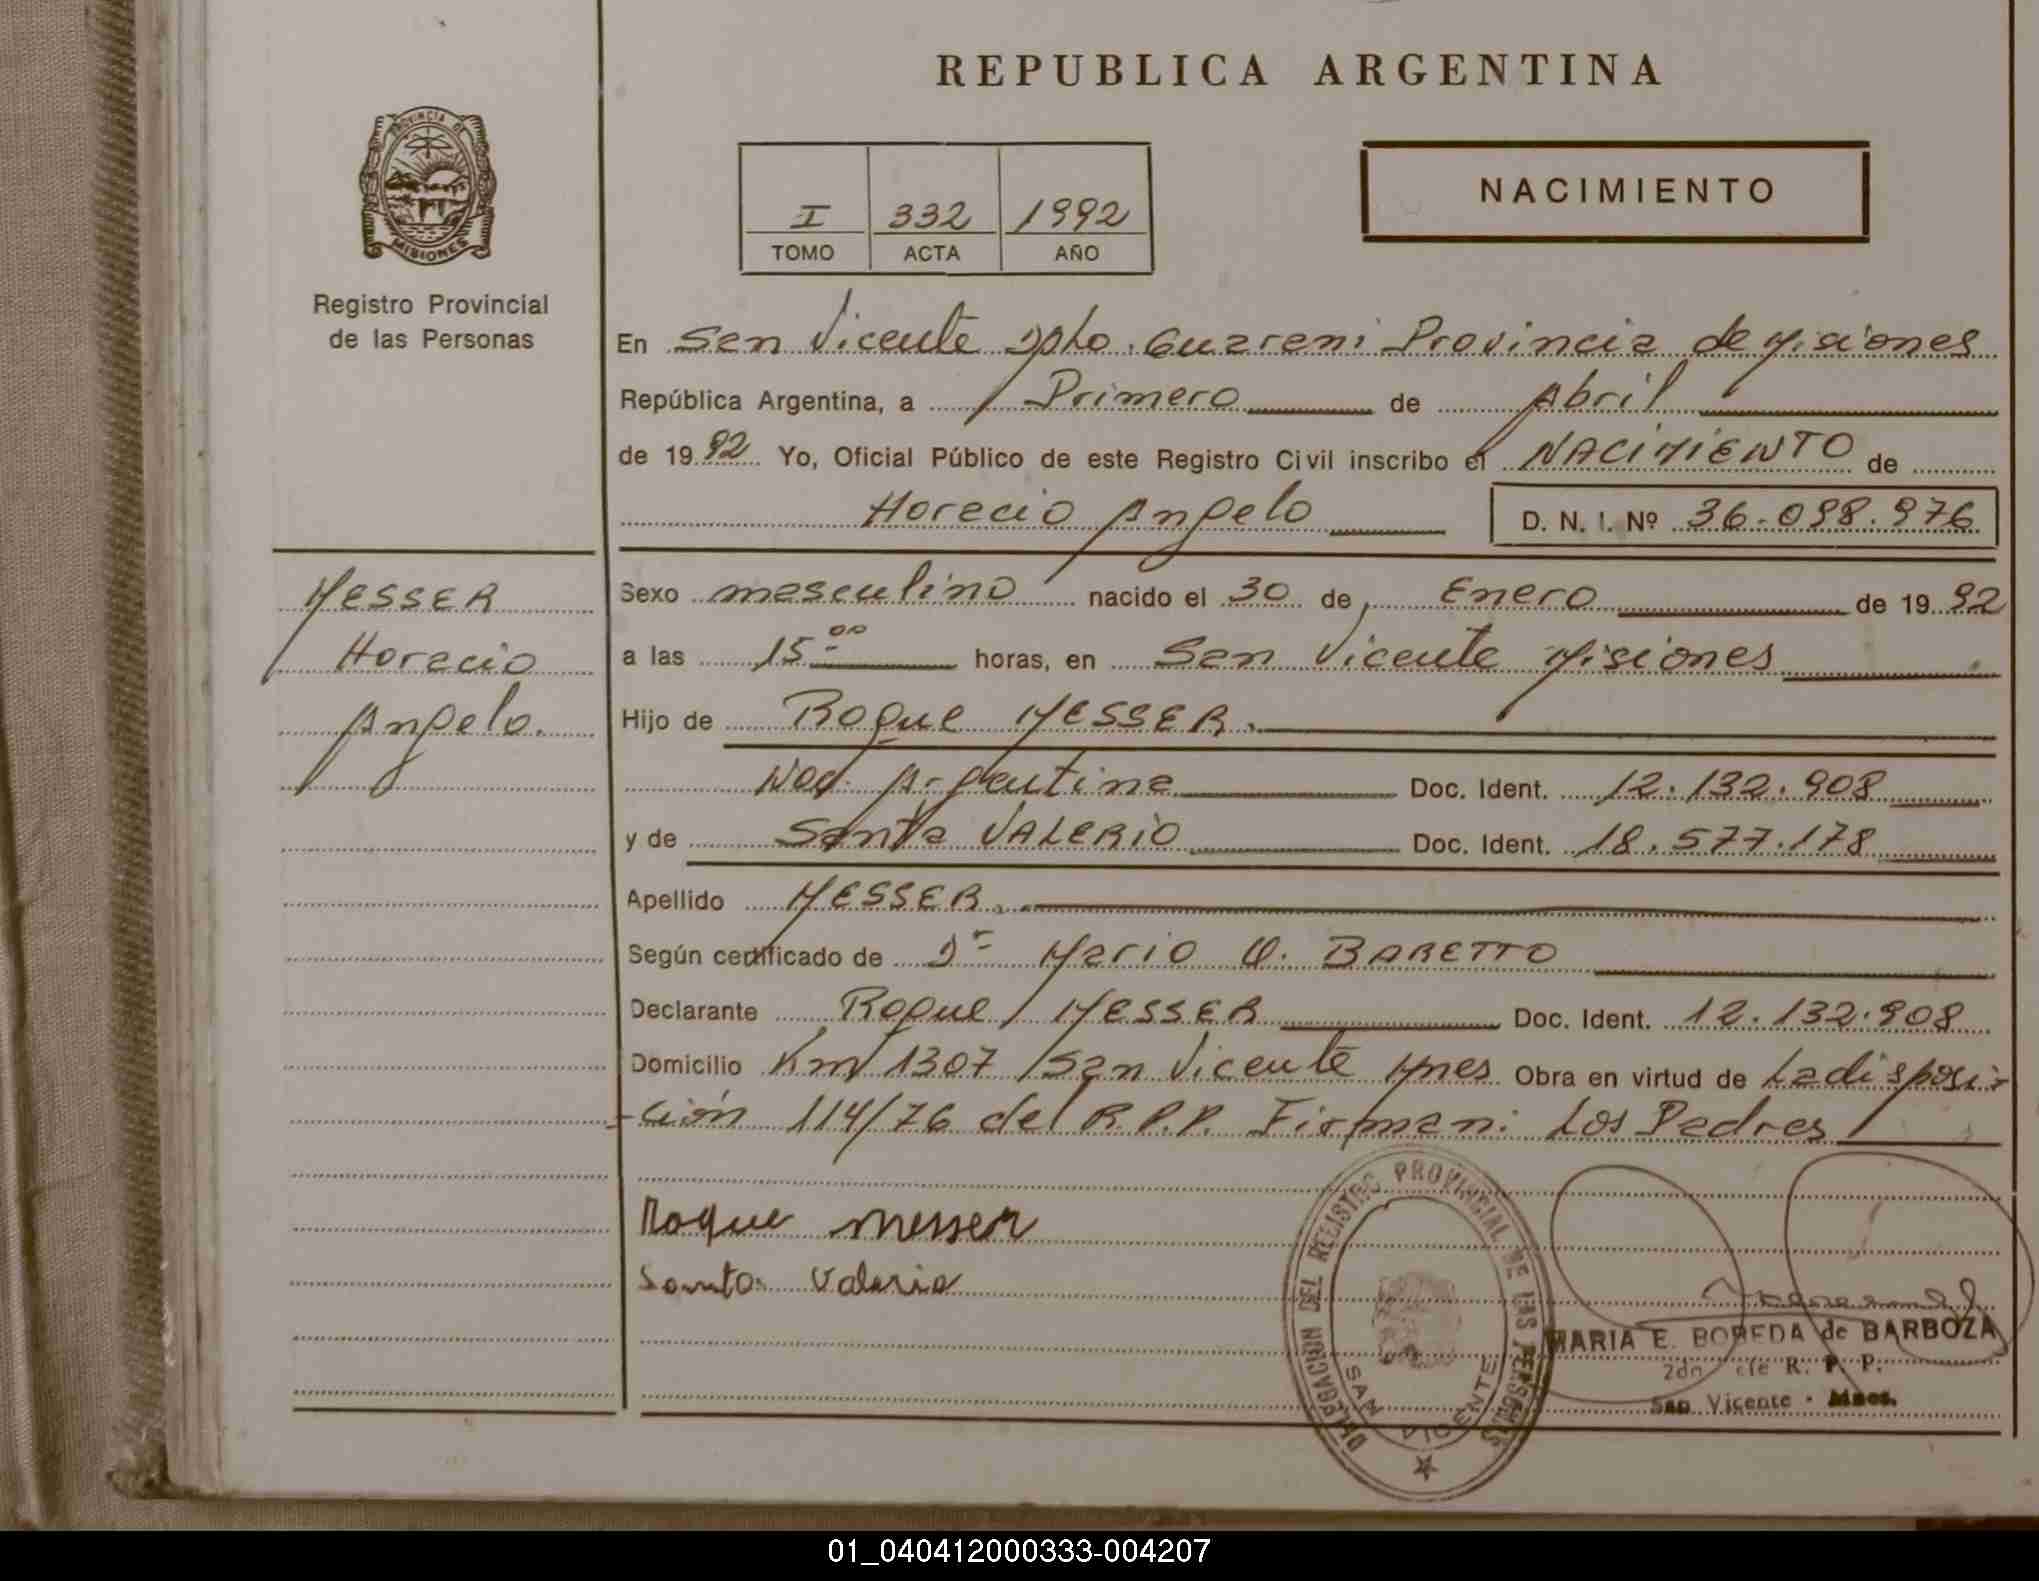 REPUBLICA ARGENTINA
PROVINCIA DE
MISIONES
Registro Provincial
de las Personas
I 332 1992
TOMO ACTA AÑO
NACIMIENTO
En San Vicente Dpto. Guarani Provincia de Misiones
República Argentina, a Primero de Abril
de 1992 Yo, Oficial Público de este Registro Civil inscribo el NACIMIENTO de
Horacio Angelo D. N. I. Nº 36.098.976
MESSER
Horacio
Angelo.
Sexo masculino nacido el 30 de Enero de 1992
a las 15 00 horas, en San Vicente Misiones
Hijo de Roque MESSER.
Nac. Argentina Doc. Ident. 12.132.908
y de Santa VALERIO Doc. Ident. 18.577.178
Apellido MESSER.
Según certificado de Dr Mario O. BARETTO
Declarante Roque MESSER Doc. Ident. 12.132.908
Domicilio Km 1307 San Vicente Mnes Obra en virtud de La disposi-
-ción 114/76 del R.P.P. Firman: Los Padres
Roque Messer
Santa Valerio
DELEGACION DEL REGISTRO PROVINCIAL DE LAS PERSONAS
SAN VICENTE
MARIA E. BOBEDA de BARBOZA
R. P. P.
San Vicente - Mnes.
01_040412000333-004207